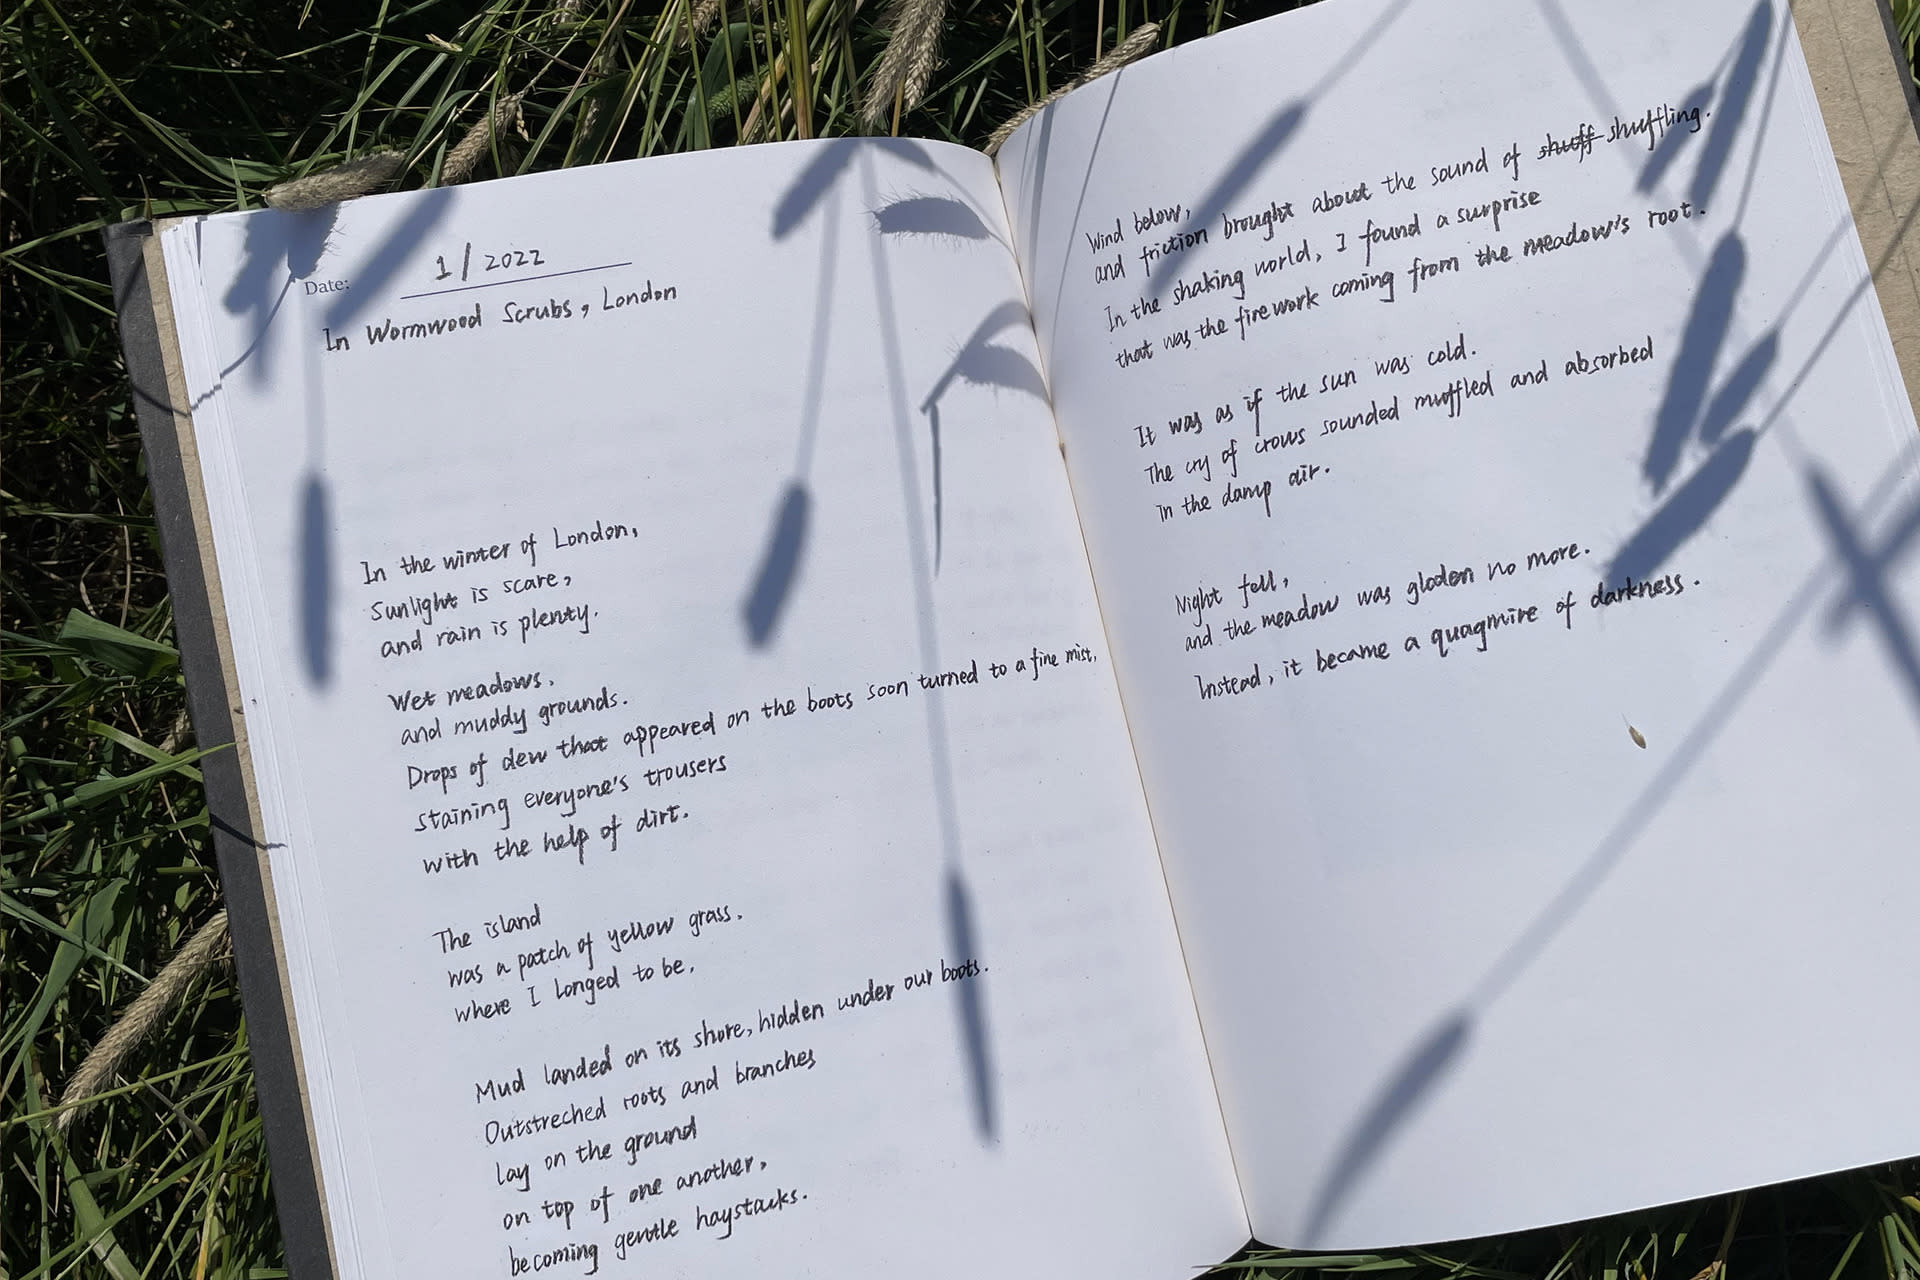 Date: 1/2022
In Wormwood Scrubs, London
In the winter of London,
Sunlight is scare,
and rain is plenty.
Wet meadows.
and muddy grounds.
Drops of dew that appeared on the boots soon turned to a fine mist,
staining everyone's trousers
with the help of dirt.
The island
was a patch of yellow grass.
where I longed to be.
Mud landed on its shore, hidden under our boots.
Outstreched roots and branches
lay on the ground
on top of one another,
becoming gentle haystacks.
Wind below,
and friction brought about the sound of shuff shuffling.
In the shaking world, I found a surprise
that was the firework coming from the meadow's root.
It was as if the sun was cold.
The cry of crows sounded muffled and absorbed
in the damp air.
Night fell,
and the meadow was gloden no more.
Instead, it became a quagmire of darkness.